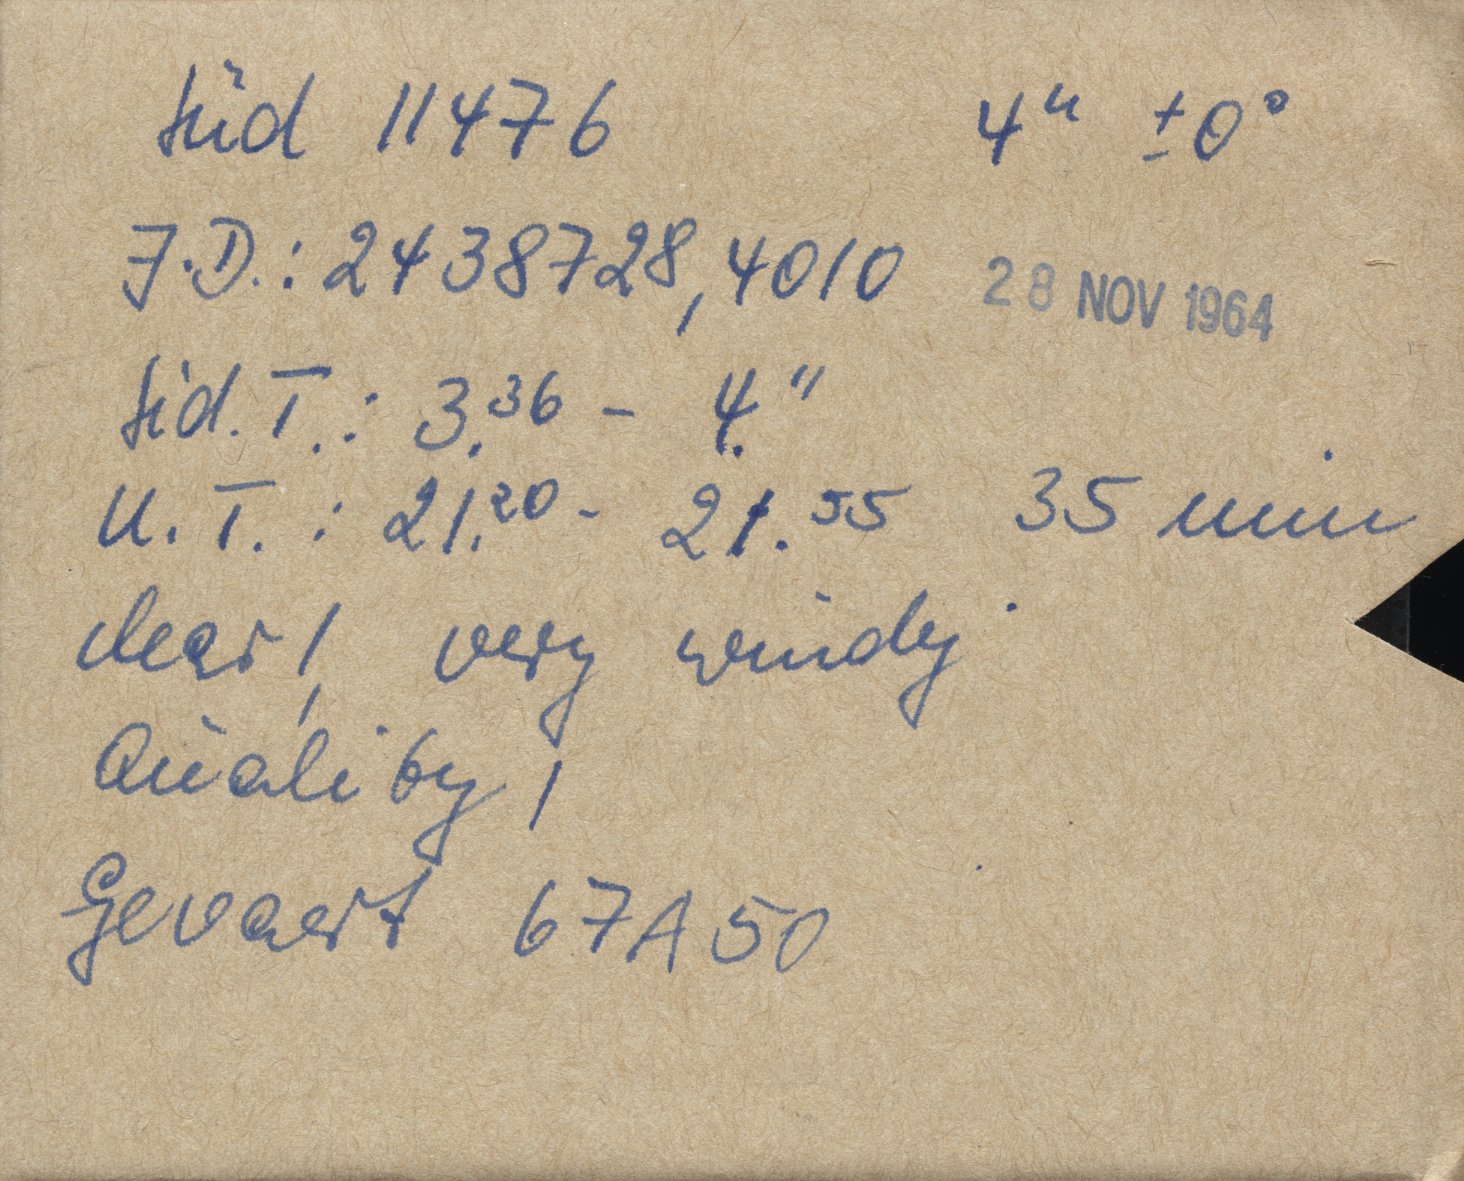 Süd 11476 4ʰ ±0°
J.D.: 2438728,4010 28 NOV 1964
Sid. T.: 3.³⁶ - 4.¹¹
U. T.: 21.²⁰ - 21.⁵⁵ 35 min
clear!, very windy
Quality 1
Gevaert 67A50